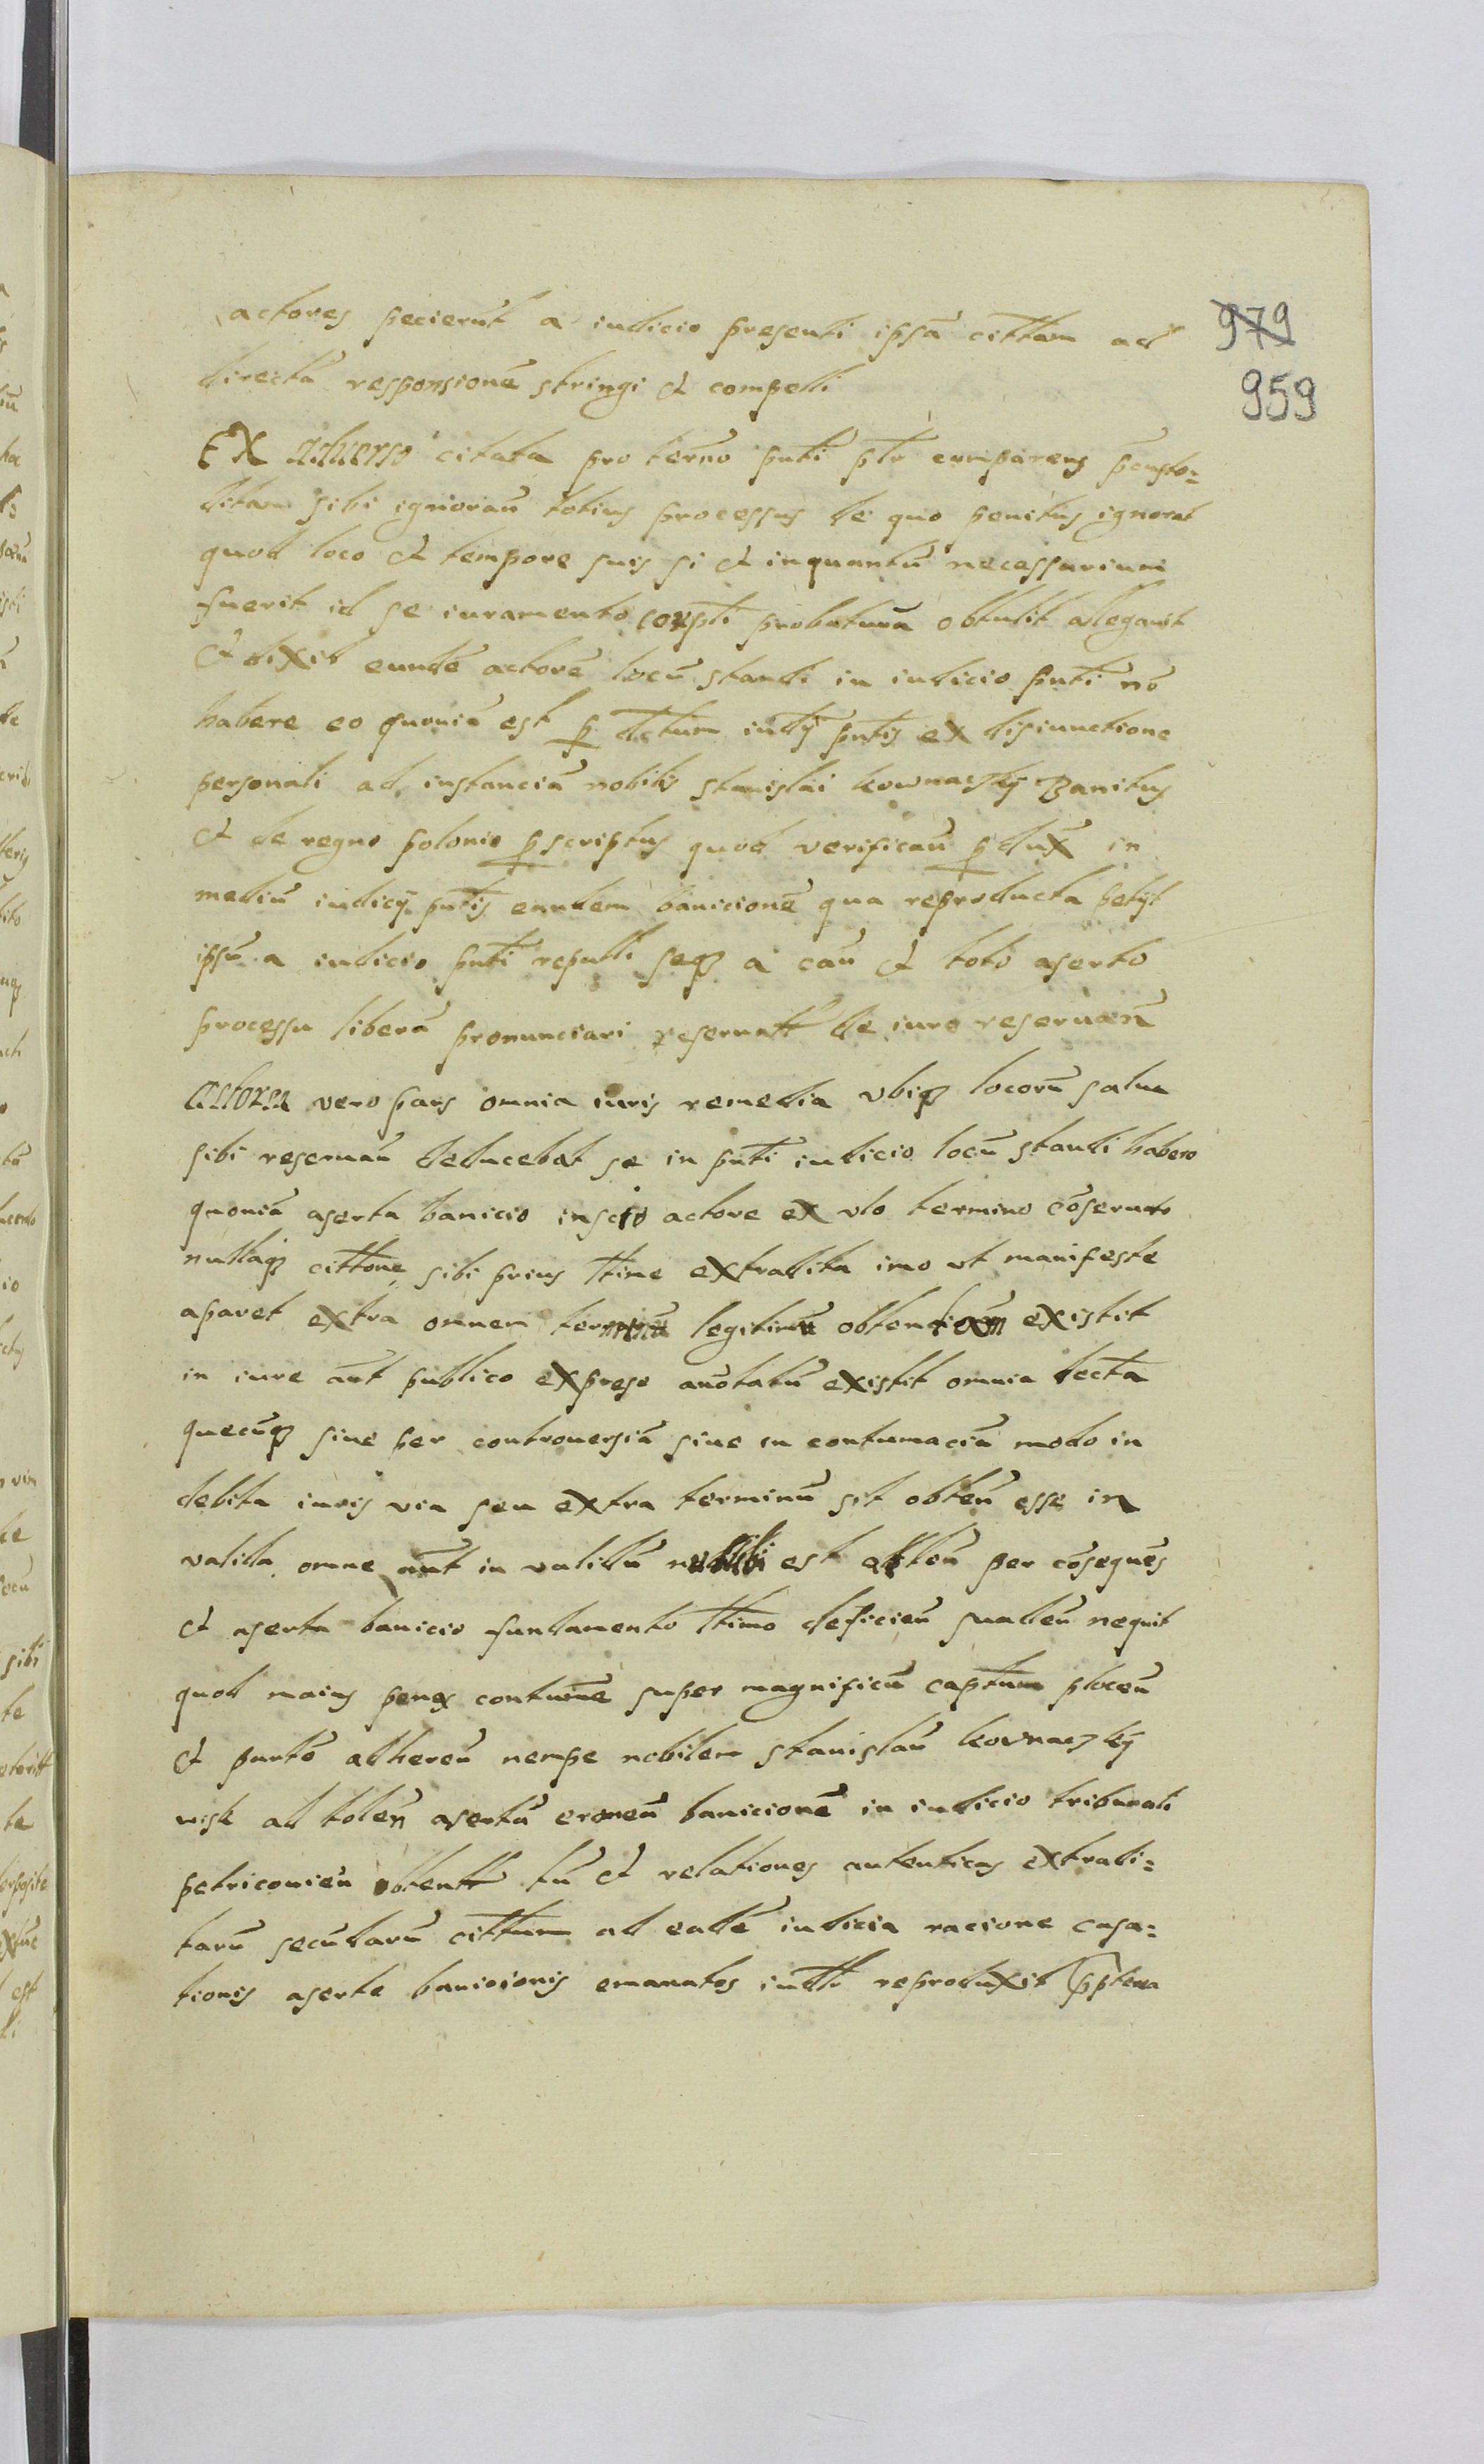 actores pecierūt a iudicio presenti ipsā cittam ad
979
directā responsionē stringi et compelli
959
Ex aduerso citata pro termō pnti pltr comparens p̄custo=
ditam sibi ignoran̄ totius processus de quo penitus ignorat
quod loco et tempore suis si et inquantū necessarium
fuerit id se iuramento corpli probaturā obtulit alegauit
et dixit eundē actorē locū standi in iudicio pnti nō
habere eo quoniā est p dctum iudÿ pntis ex disiunctione
personali ad instanciā nobilis stanislai kownaczkÿ Banitus
et de regno polonio pscriptus quod verifican̄ pdux̄ in
mediū iudicÿ pntis eandem banicionē qua reproducta petÿt
ipsū a iudicio pnti repelli seqz a caū et toto aserto
processu liberā pronunciari reseruatt de iure reseruan̄
Actorea vero pars omnia iuris remedia vbiqz locorū salua
sibi reseruan̄ deducebat se in pnti iudicio locū standi habere
quoniā aserta banicio inscio actore ex vlo termino cōseruato
nullaqz cittone sibi prius ttime extradita imo vt manifeste
aparet extra omnem terminū legitimū existit
in iure aūt publico exprese anotatū existit omnia decta
quecūqz siue per controuersiā siue in contumaciā modo in
debita iuris via seu extra terminū sit obten̄ esse in
valida omne aūt in validū est per cōsequēs
et aserta banicio fundamento ttimo deficien̄ suaden̄ nequit
quod maius penes contumē super magnificū captum plocen̄
et partē adheren̄ nempe nobilem stanislaū kownaczkÿ
misk ad tolen̄ asertā eroneā banicionē in iudicio tribunali
petriconien̄ obtentt tū et relationes autenticas extradi=
tarū secūdarū cittum ad eadē iudicia racione casa=
tionis aserte banicionis emanatos iudtr reproduxit pptera